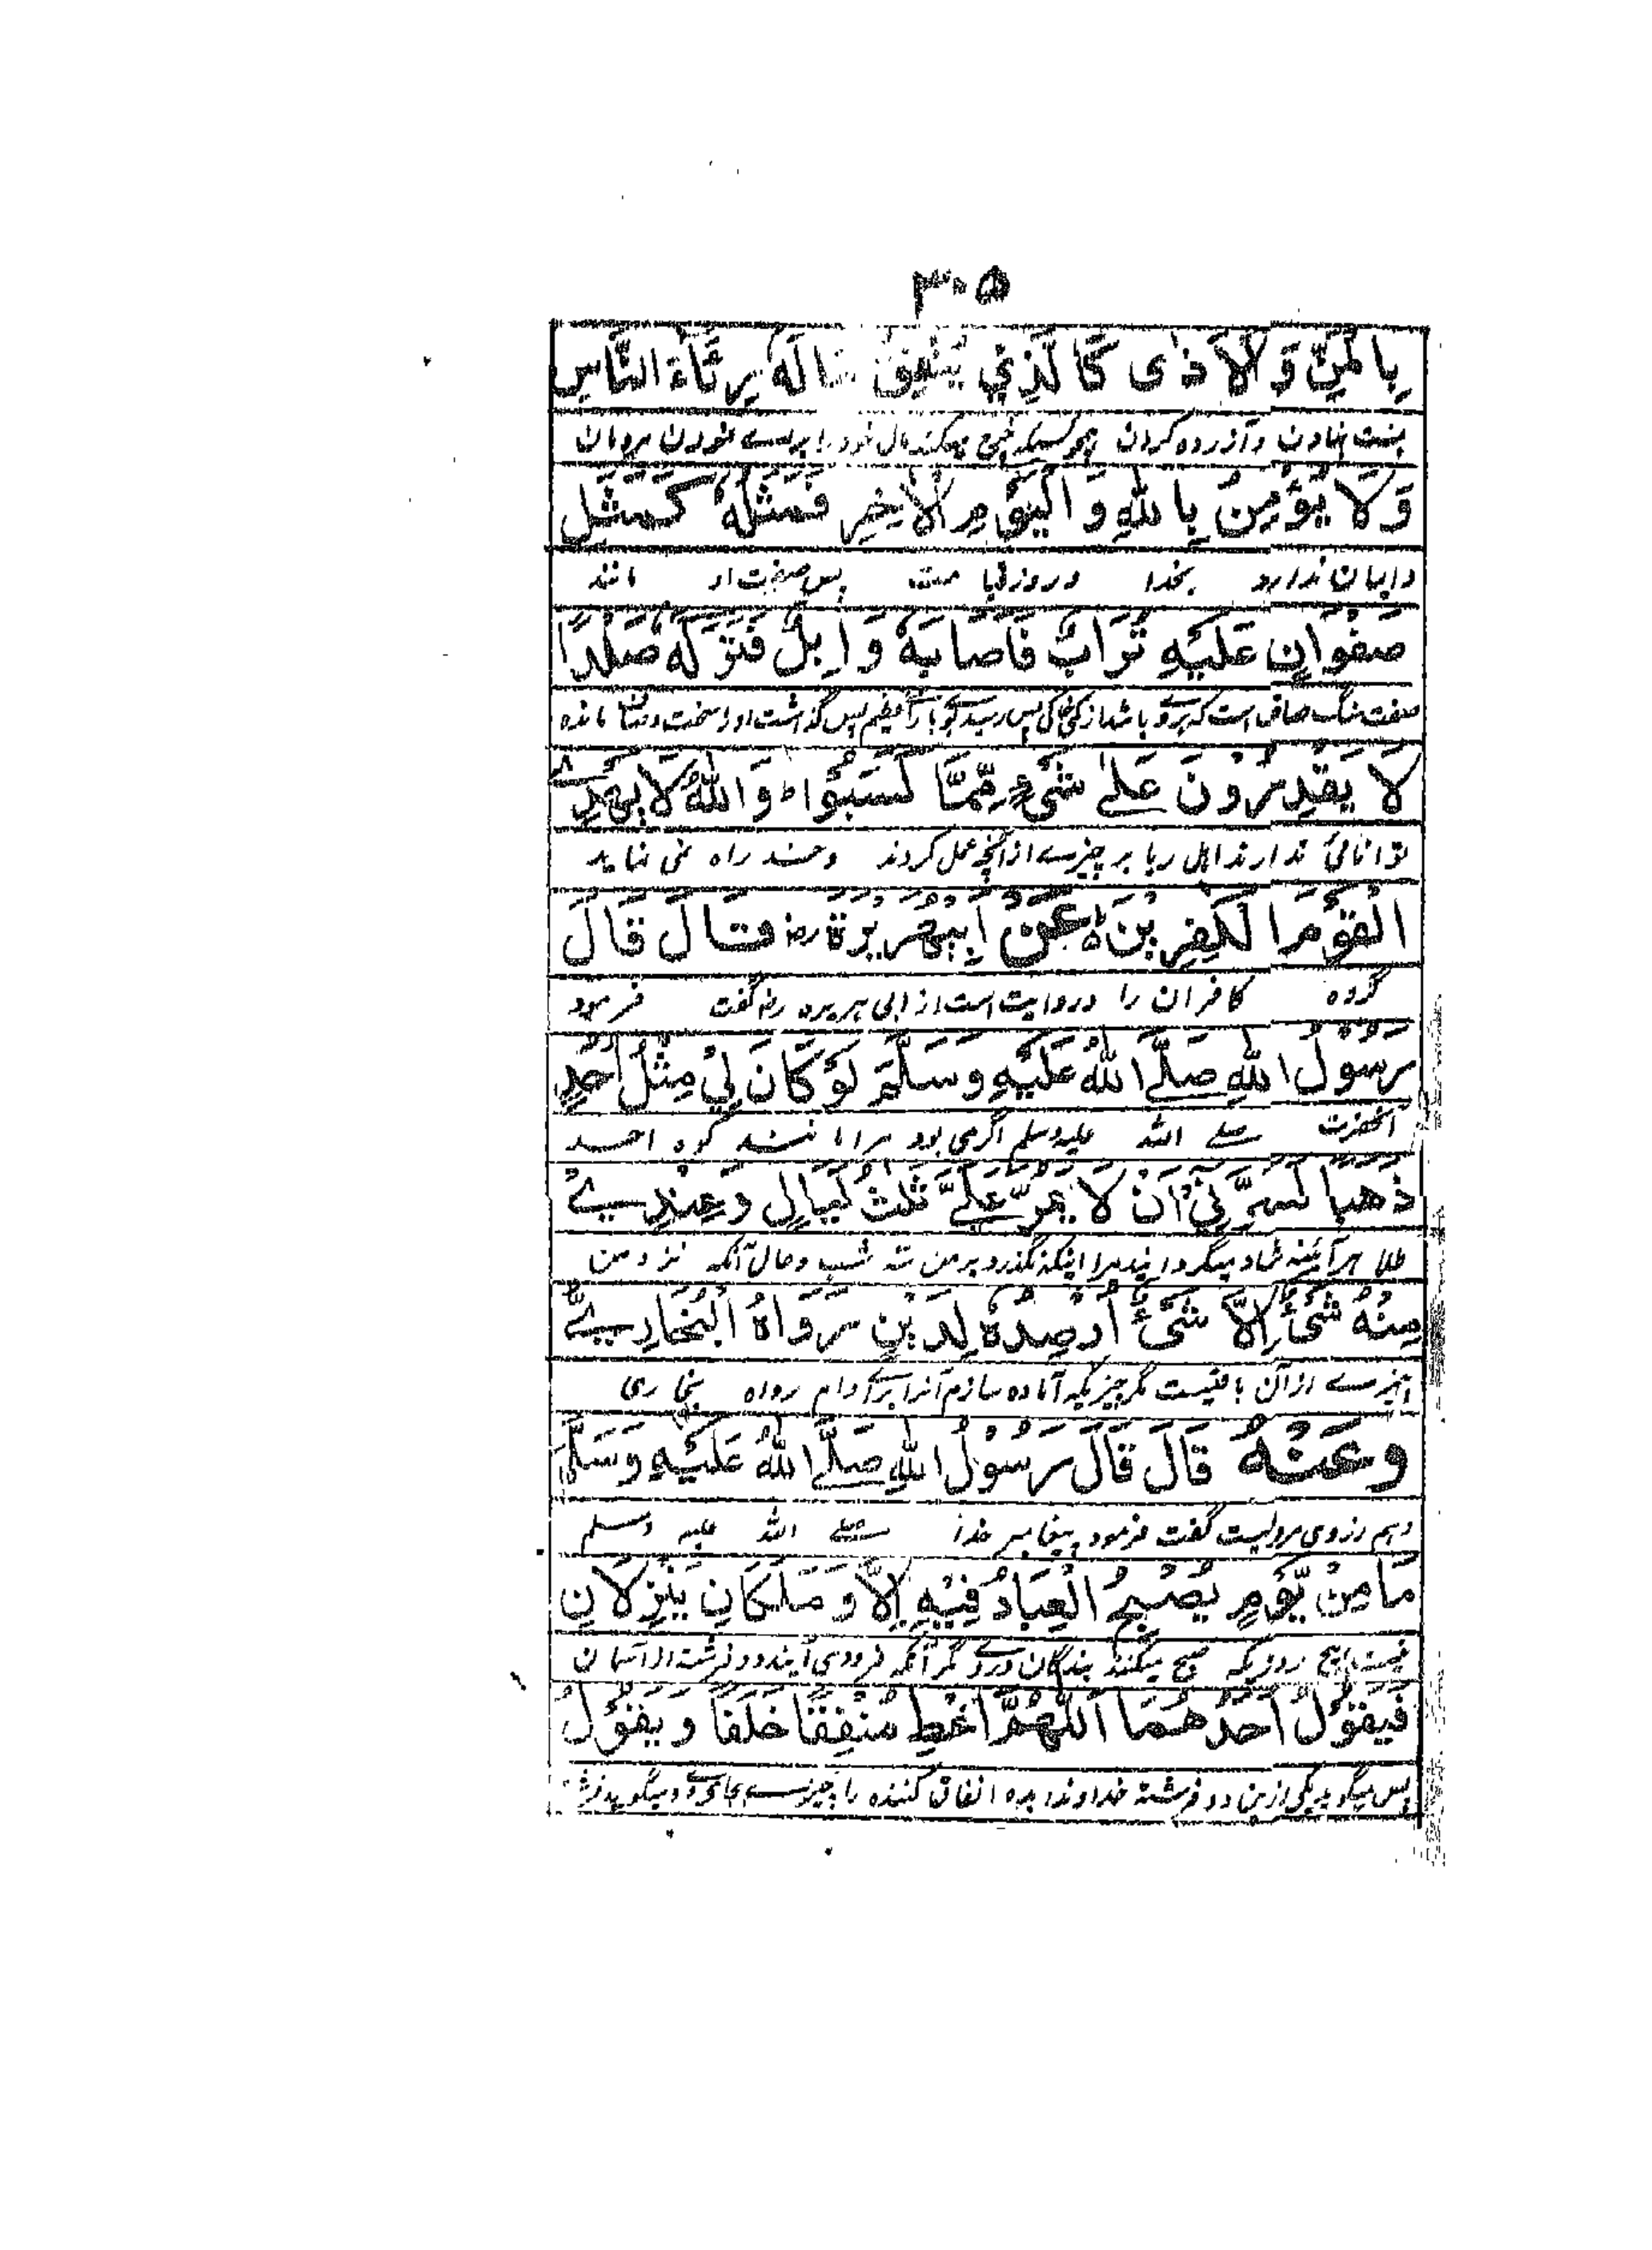 ۳۰۵
بِالْمَنِّ وَالْاَذٰى كَالَّذِيْ يُنْفِقُ مَالَهٗ رِئَآءَ النَّاسِ
بمنت نهادن و آزرده کردن همچو کسیکه خرچ میکند مال خود را براے نمودن مردمان
وَلَا يُؤْمِنُ بِاللّٰهِ وَالْيَوْمِ الْاٰخِرِ فَمَثَلُهٗ كَمَثَلِ
و ایمان ندارد بخدا و روز قیامت پس صفت او مانند
صَفْوَانٍ عَلَيْهِ تُرَابٌ فَاَصَابَهٗ وَابِلٌ فَتَرَكَهٗ صَلْدًا
صفت سنگ صاف است که بروے باشد از کے خاکی پس رسید باران عظیم پس گذاشت او را سخت مانده
لَا يَقْدِرُوْنَ عَلٰے شَيْءٍ مِّمَّا كَسَبُوْا ط وَاللّٰهُ لَا يَهْدِے
توانائی ندارند اهل ریا بر چیزے از آنچه عمل کردند و خدا راه نمی نماید
الْقَوْمَ الْكٰفِرِيْنَ عَنْ اَبِيْهُرَيْرَةَ رض قَالَ قَالَ
گروه کافران را و روایت است از ابی هریره رض گفت فرمود
رَسُوْلُ اللّٰهِ صَلَّے اللّٰهُ عَلَيْهِ وَسَلَّمَ لَوْ كَانَ لِيْ مِثْلُ اُحُدٍ
آنحضرت صلے الله علیه وسلم اگر می بود مرا مانند کوه احد
ذَهَبًا لَسَرَّنِيْ اَنْ لَا يَمُرَّ عَلَيَّ ثَلٰثُ لَيَالٍ وَعِنْدِيْ
طلا هر آئینه شاد میگردانید مرا اینکه نگذرد بر من سه شب و حال آنکه نزد من
مِنْهُ شَيْءٌ اِلَّا شَيْءٌ اُرْصِدُهٗ لِدَيْنٍ رَوَاهُ الْبُخَارِيُّ
چیزے از آن باقیست مگر چیزیکه آماده سازم آنرا براے وام رواه بخاری
وَعَنْهُ قَالَ قَالَ رَسُوْلُ اللّٰهِ صَلَّے اللّٰهُ عَلَيْهِ وَسَلَّمَ
و هم از وی مرویست گفت فرمود پیغامبر خدا صلے الله علیه وسلم
مَا مِنْ يَّوْمٍ يُصْبِحُ الْعِبَادُ فِيْهِ اِلَّا وَمَلَكَانِ يَنْزِلَانِ
نیست هیچ روزیکه صبح میکنند بندگان دروے مگر آنکه فرود می آیند دو فرشته از آسمان
فَيَقُوْلُ اَحَدُهُمَا اَللّٰهُمَّ اَعْطِ مُنْفِقًا خَلَفًا وَيَقُوْلُ
پس میگوید یکی ازین دو فرشته خداوندا بده انفاق کننده را چیزے بجاے و میگوید